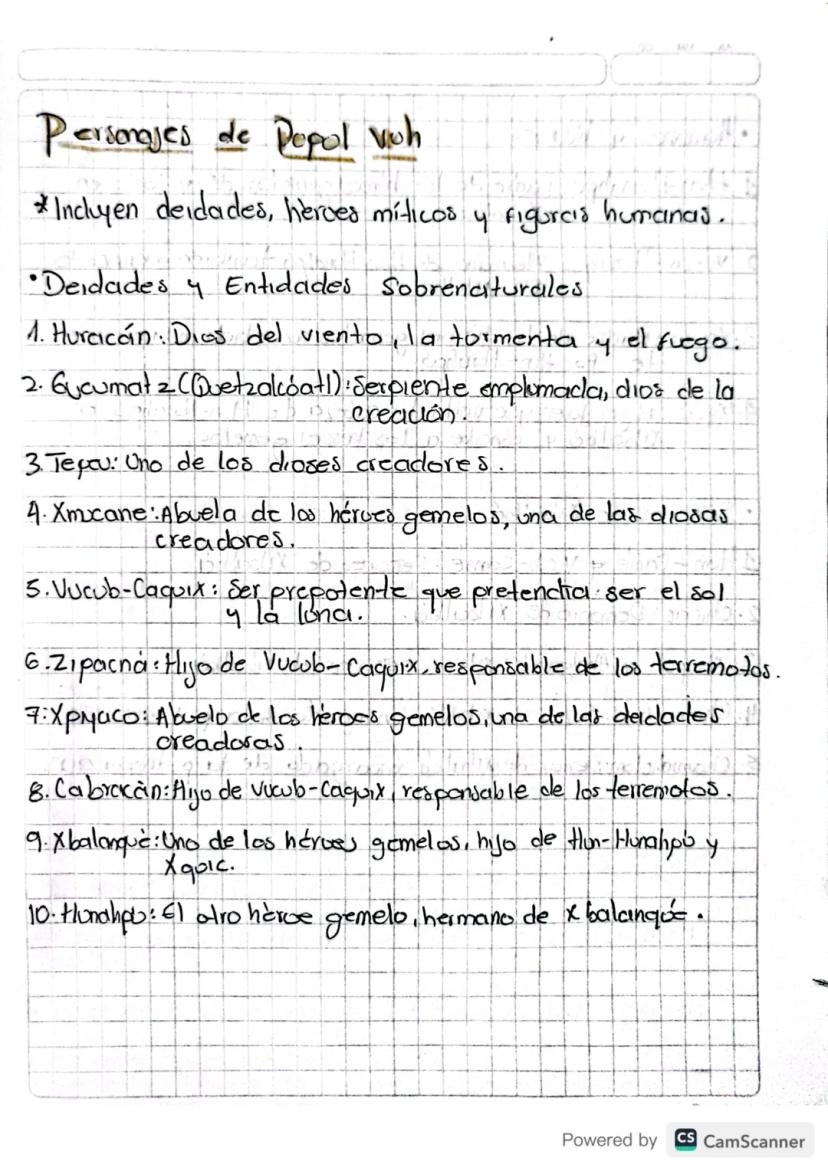 Personajes de Popol Vuh
*Incluyen deidades, hèroes míticos y figuras humanas.
•Deidades y Entidades Sobrenaturales
1. Huracán: Dios del viento, la tormenta y el fuego.
2. Gucumatz (Quetzalcóatl): Serpiente emplumada, dios de la
creación.
3. Tepeu: Uno de los dioses creadores.
4. Xmucane: Abuela de los héroes gemelos, una de las diosas
creadores.
5. Vucub-Caquix: Ser prepotente que pretendia ser el sol
y la luna.
6. Zipacná: Hijo de Vucub-Caquix, responsable de los terremotos.
7: Abuelo de los hèroes gemelos, una de las deidades
creadoras.
8. Cabracàn: Hijo de Vucub-Caquix, responsable de los terremotos.
9. Xbalanquè: Uno de los héroes gemelos, hijo de Hun-Hunahpú y
Xquic.
10. Hunahpú: El otro hèroe gemelo, hermano de Xbalanqué.
Powered by CS CamScanner